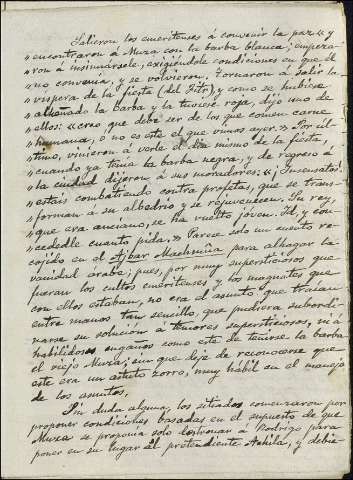 Salieron los emeritenses á convenir la paz "y
"encontraron á Muza con la barba blanca; empeza-
"ron á insinuársele, exigiéndole condiciones en que él
"no convenía, y se volvieron. Tornaron á salir la
"víspera de la fiesta (del Fitr), y como se hubiese
"alheñado la barba y la tuviese roja, dijo uno de
"ellos: "creo que debe ser de los que comen carne
"humana, ó no es este el que vimos ayer." Por úl-
"timo, vinieron á verle el día mismo de la fiesta,
"cuando ya tenía la barba negra, y de regreso á
"la ciudad dijeron á sus moradores: "¡Insensatos!
"estáis combatiendo contra profetas, que se trans-
"forman á su albedrío y se rejuvenecen. Su rey,
"que era anciano, se ha vuelto jóven. Id, y con-
"cededle cuanto pida." Parece solo un cuento re-
cojido en el Ajbar Machmúa para alhagar la
vanidad árabe; pues, por muy supersticiosos que
fueran los cultos emeritenses y los magnates que
con ellos estaban, no era el asunto que traían
entre manos tan sencillo, que pudiera subordi-
narse su solución á temores supersticiosos, ni á
habilidosos engaños como este de teñirse la barba
el viejo Muza; aun que deje de reconocerse que
este era un astuto zorro, muy hábil en el manejo
de los asuntos.
Sin duda alguna, los sitiados comenzaron por
proponer condiciones basadas en el supuesto de que
Muza se proponía solo destronar á Rodrigo para
poner en su lugar al pretendiente Achila, y debie-